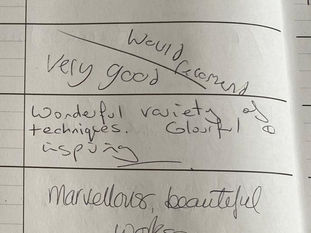 Would
very good recomend
Wonderful variety of
techniques. Colourful &
inspiring
marvellous, beauteful
works